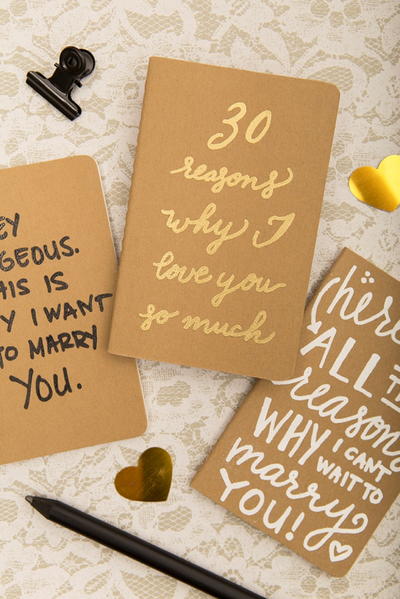 30
reasons
why I
love you
so much
EY
GEOUS.
HIS IS
Y I WANT
TO MARRY
YOU.
(here
ALL
reasons
WHY I CAN'T
WAIT TO
marry
YOU!